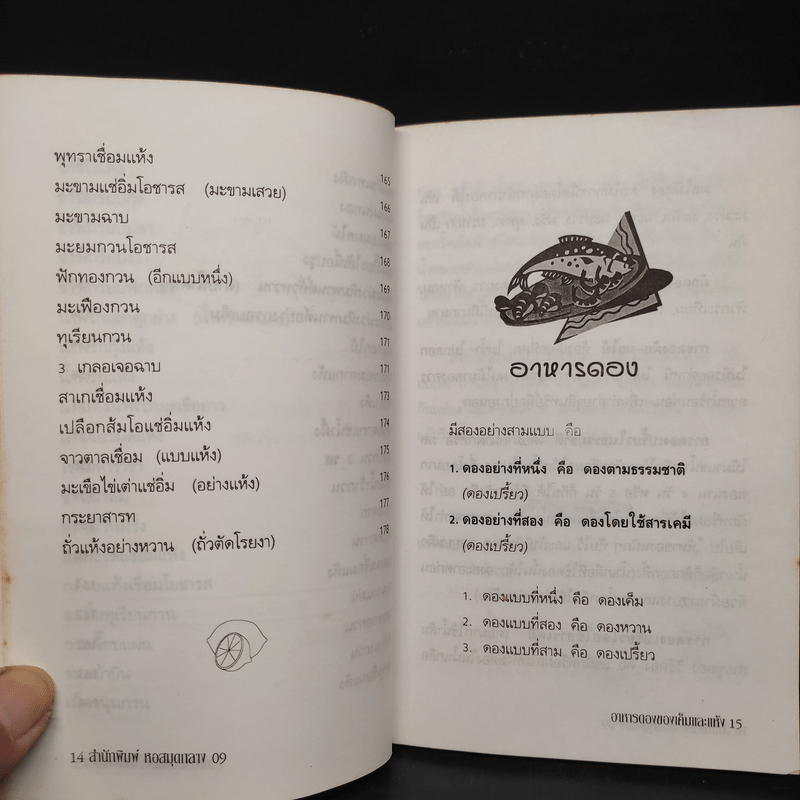 พุทราเชื่อมแห้ง 165
มะขามแช่อิ่มโอชารส (มะขามเสวย) 166
มะขามฉาบ 167
มะยมกวนโอชารส 168
ฟักทองกวน (อีกแบบหนึ่ง) 169
มะเฟืองกวน 170
ทุเรียนกวน 171
3 เกลอเจอฉาบ 171
สาเกเชื่อมแห้ง 173
เปลือกส้มโอแช่อิ่มแห้ง 174
จาวตาลเชื่อม (แบบแห้ง) 175
มะเขือไข่เต่าแช่อิ่ม (อย่างแห้ง) 176
กระยาสารท 177
ถั่วแห้งอย่างหวาน (ถั่วตัดโรยงา) 178
14 สำนักพิมพ์ หอสมุดกลาง 09
อาหารดอง
มีสองอย่างสามแบบ คือ
1. ดองอย่างที่หนึ่ง คือ ดองตามธรรมชาติ
(ดองเปรี้ยว)
2. ดองอย่างที่สอง คือ ดองโดยใช้สารเคมี
(ดองเปรี้ยว)
1. ดองแบบที่หนึ่ง คือ ดองเค็ม
2. ดองแบบที่สอง คือ ดองหวาน
3. ดองแบบที่สาม คือ ดองเปรี้ยว
อาหารดองของเค็มและแห้ง 15